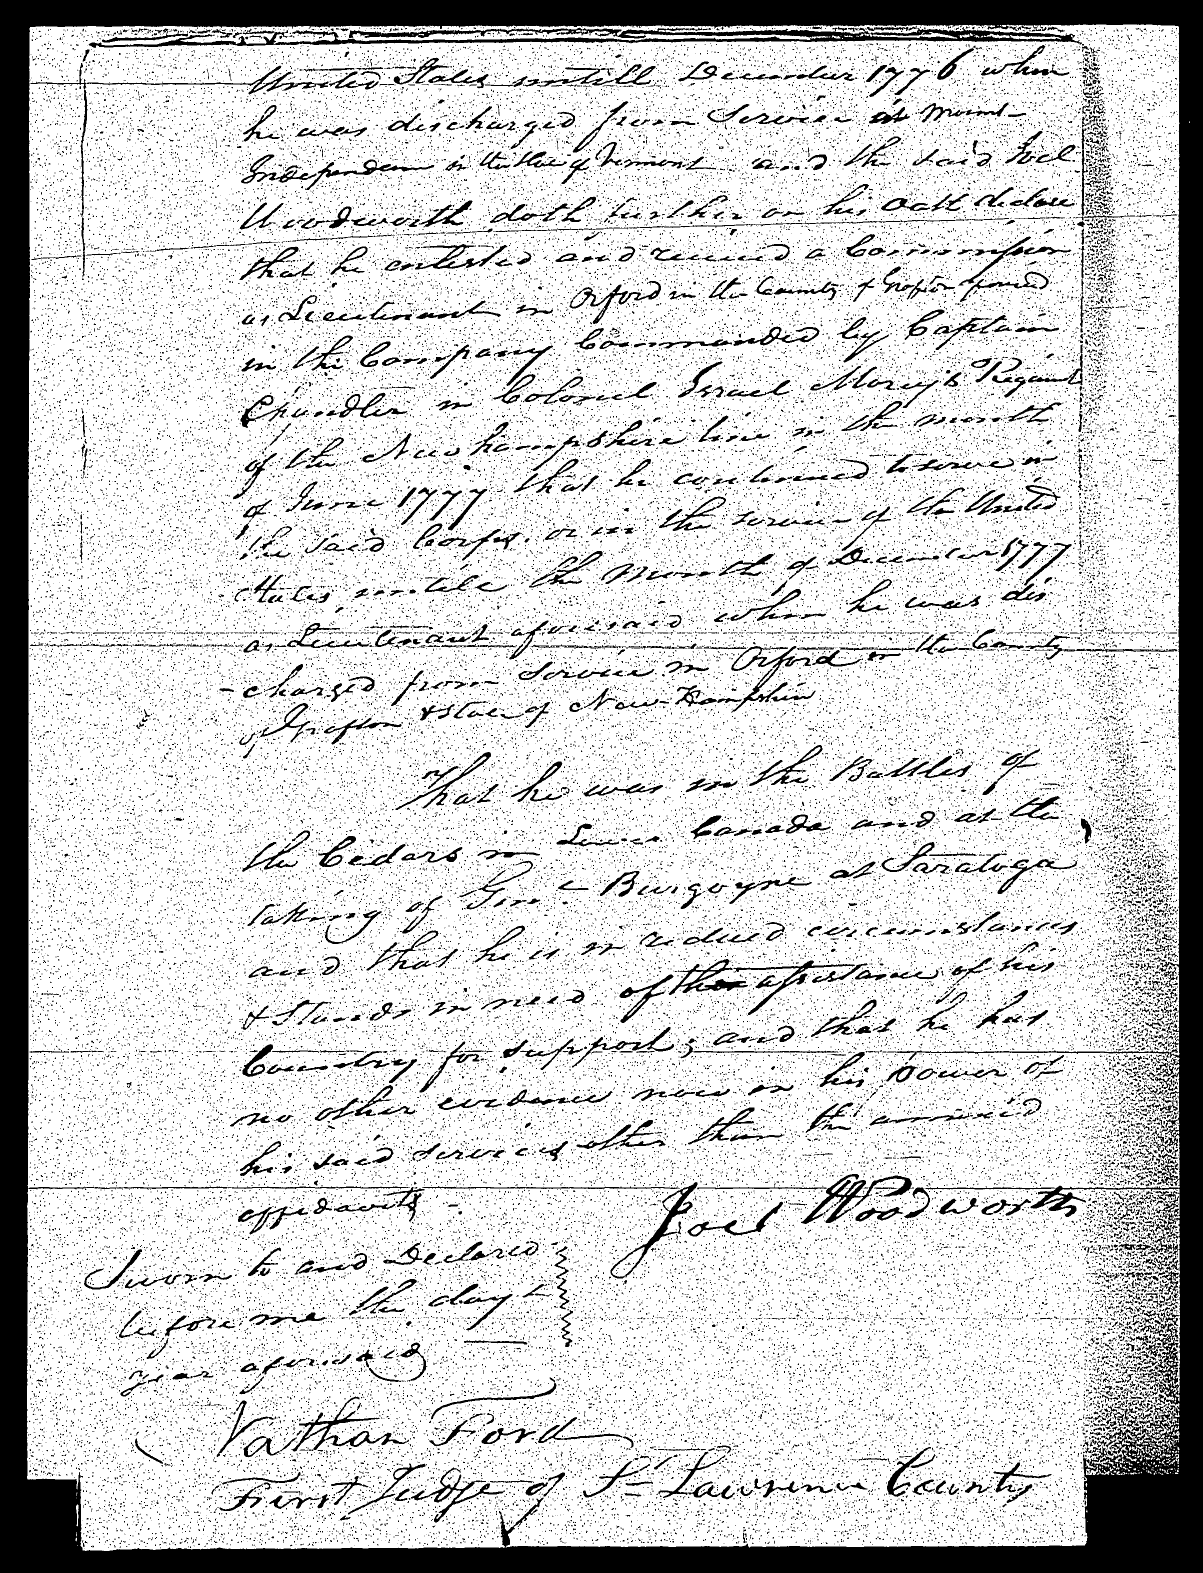 United States untill December 1776 when
he was discharged from Service at Mount-
Independence in the State of Vermont and the said Joel
Woodworth doth further on his Oath declare
that he entisted and received a Commission
as Lieutenant in Orford in the County of Grafton aforesaid
in the Company Commanded by Captain
Chandler in Colonel Israel Morey's Regiment
of the Newhampshire line in the month
of June 1777 that he continued to serve in
the said Corps, or in the service of the United
States, untill the Month of December 1777
as Lieutenant aforesaid when he was dis
-charged from Service in Orford in the County
of Grafton & State of New-Hampshire
That he was in the Battles of
the Cedars in Lower Canada and at the
taking of Genl. Burgoyne at Saratoga
and that he is in reduced circumstances
& Stands in need of the assistance of his
Country for support; and that he has
no other evidence now in his power of
his said services other than the annexed
affidavits -.
Joel Woodworth
Sworn to and Declared
before me the day &
year aforesaid
Nathan Ford
First Judge of St Lawrence County